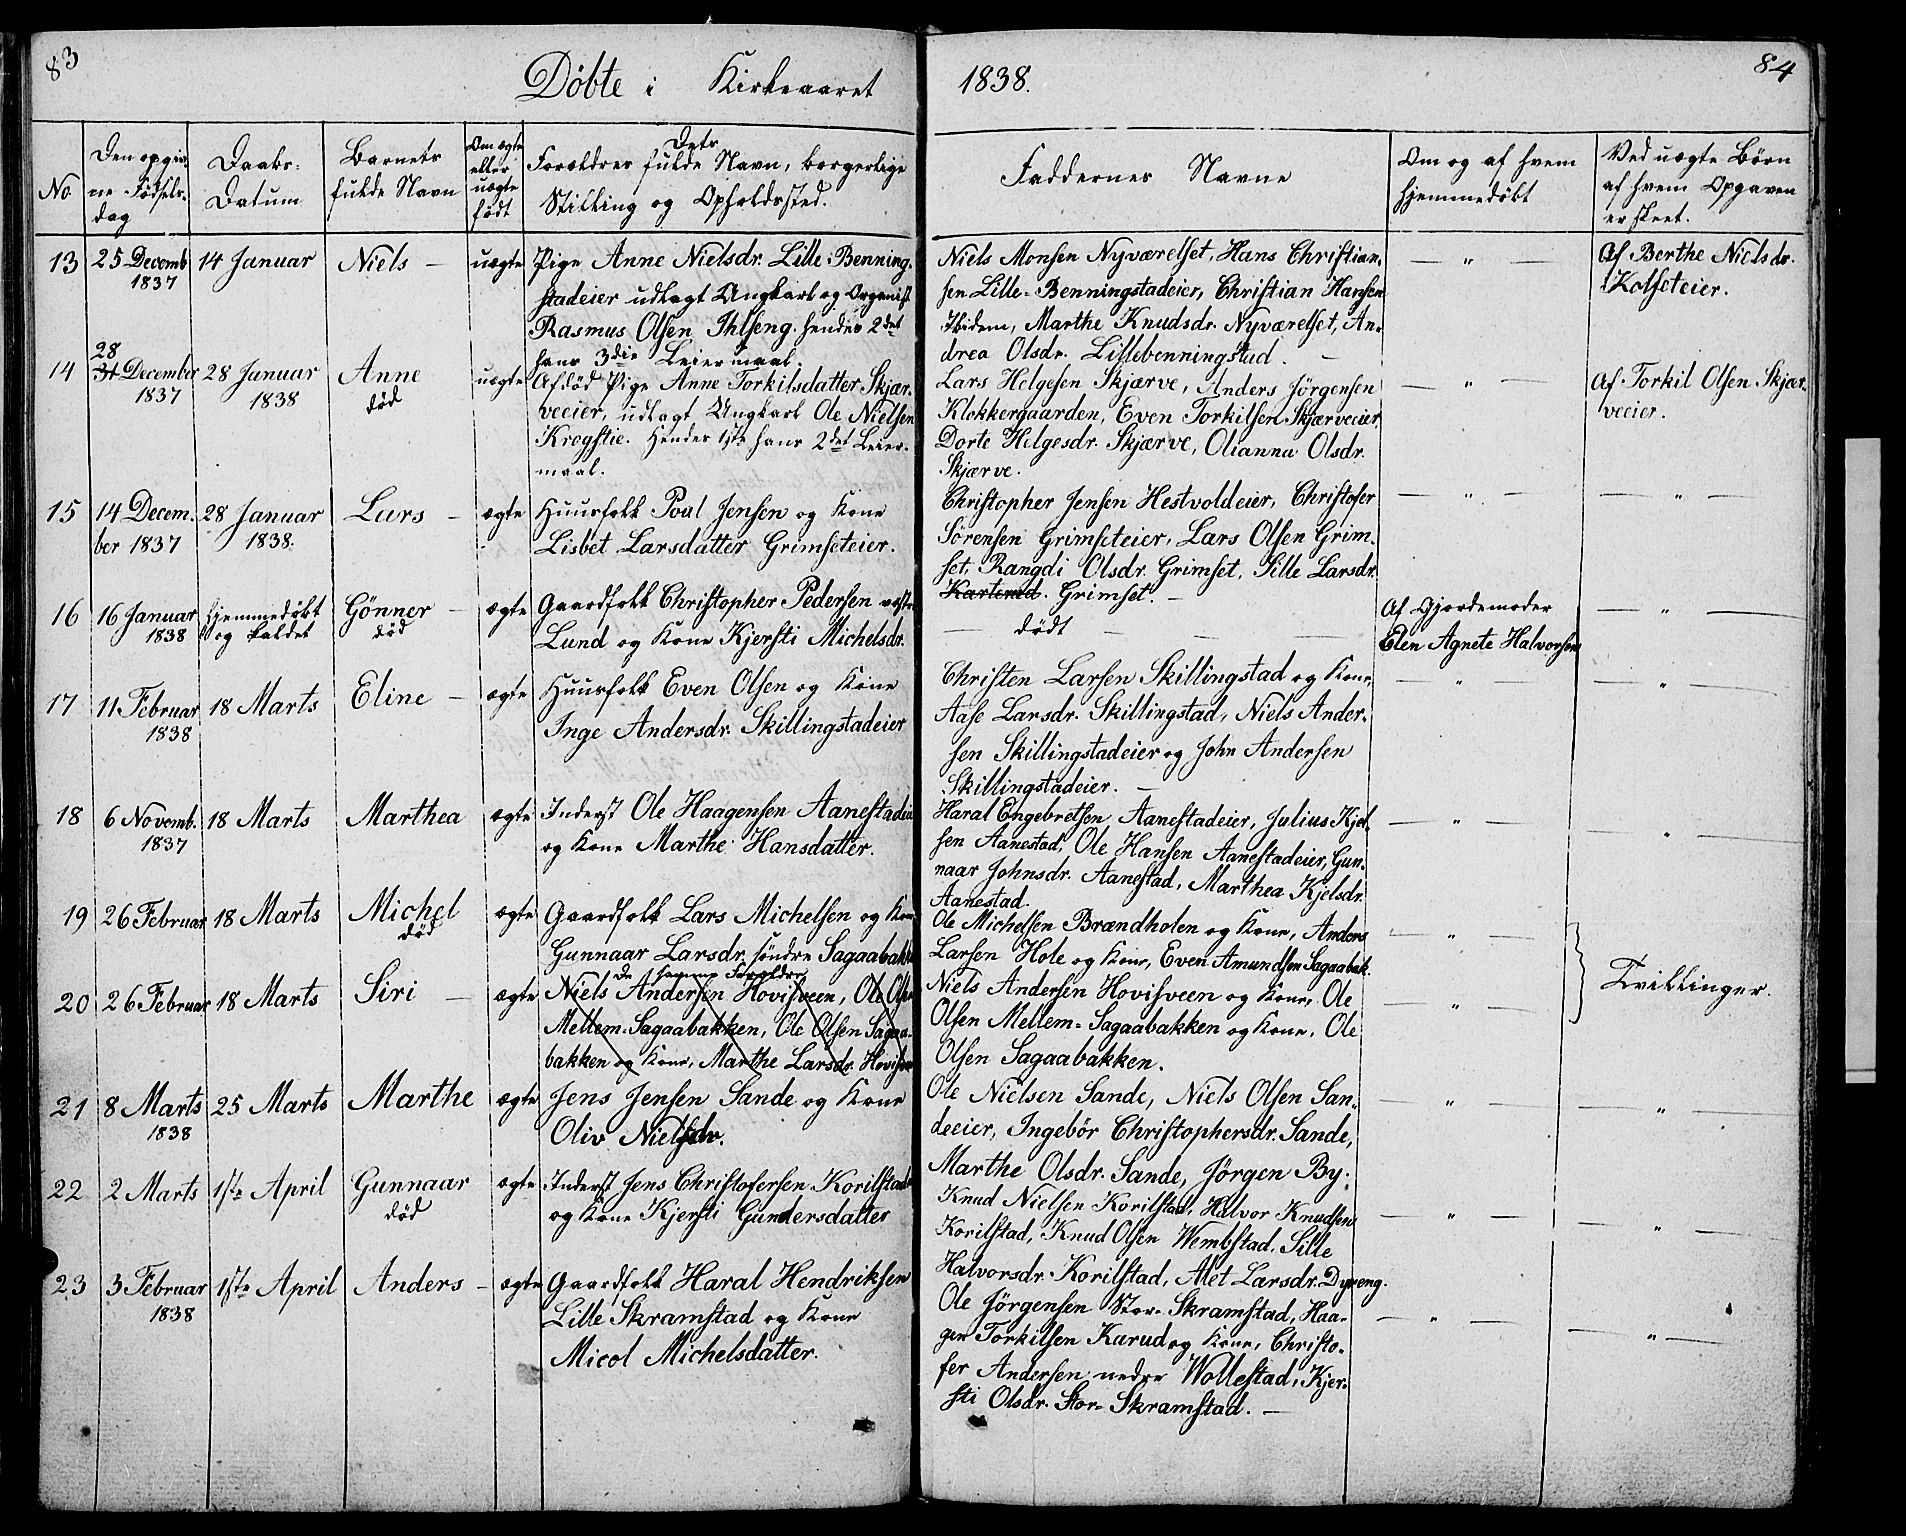 83
Döbte i Kirkeaaret
1838.
84
No
Den opgiv-
ne Födsels-
dag
Daabs-
Datum
Barnets
fulde Navn
Om ægte
eller
uægte
født
Dets
Forældres fulde Navn, borgerlige
Stilling og Opholdssted.
Faddernes Navne
Om og af hvem
hjemmedöbt
Ved uægte Börn
af hvem Opgaven
er skeet.
13 25 Decemb 14 Januar Niels – uægte Pige Anne Nielsdr. Lille-Benning-
1837 stadeier udlagt Ungkarl og Organist
Rasmus Olsen Ihlseng. hendes 2det
hans 3die Leiermaal.
Niels Monsen Nyværelset, Hans Christian-
sen Lille-Benningstadeier, Christian Hansen
Ibidem, Marthe Knudsdr. Nyværelset, An-
drea Olsdr. Lillebenningstad. –
— " —
Af Berthe Nielsdr.
Kolseteier.
28
14 31 December 28 Januar Anne uægte Afdöd Pige Anne Torkilsdatter Skjær-
1837 1838 död veeier, udlagt Ungkarl Ole Nielsen
Krogstie. Hendes 1ste hans 2det Leier-
maal.
Lars Helgesen Skjærve, Anders Jörgensen
Klokkergaarden, Even Torkilsen Skjærveeier,
Dorte Helgesdr. Skjærve, Olianna Olsdr.
Skjærve.
— " —
Af Torkil Olsen Skjær-
veeier.
15 14 Decem- 28 Januar Lars – ægte Huusfolk Poul Jensen og Kone
ber 1837 1838. Lisbet Larsdatter Grimseteier.
Christopher Jensen Hestvoldeier, Christofer
Sörensen Grimseteier, Lars Olsen Grim-
set, Rangdi Olsdr. Grimset, Sille Larsdr.
Grimset. –
— " — — " —
16 16 Januar hjemmedöbt Gönner – ægte Gaardfolk Christopher Pedersen
1838 og död Lund og Kone Kjersti Michelsdr.
— dödt — — —
Af Gjordemoder
Elen Agnete Halvorsen
— " —
17 11 Februar 18 Marts Eline – ægte Huusfolk Even Olsen og Kone
1838 Inge Andersdr. Skillingstadeier
Christen Larsen Skillingstad og Kone,
Aase Larsdr. Skillingstad, Niels Ander-
sen Skillingstadeier og John Andersen
Skillingstadeier. –
— " — — " —
18 6 Novemb. 18 Marts Marthea ægte Inderst Ole Haagensen Aanestadeier
1837 og Kone Marthe Hansdatter.
Haral Engebretsen Aanestadeier, Julius Kjel-
sen Aanestad, Ole Hansen Aanestadeier, Gun-
naar Johnsdr. Aanestad, Marthea Kjelsdr.
Aanestad.
— " — — " —
19 26 Februar 18 Marts Michel ægte Gaardfolk Lars Michelsen og Kone
död Gunnaar Larsdr. söndre Sagaabakken
Ole Michelsen Brændholen og Kone, Anders
Larsen Hole og Kone, Even Amundsen Sagaabak.
— " —
Tvillinger.
De samme Forældre
20 26 Februar 18 Marts Siri – ægte Niels Andersen Hovisveen, Ole Olsen
Mellem-Sagaabakken, Ole Olsen Sagaa-
bakken og Kone, Marthe Larsdr. Hovisveen
Niels Andersen Hovisveen og Kone, Ole
Olsen Mellem-Sagaabakken og Kone, Ole
Olsen Sagaabakken.
— " —
21 8 Marts 25 Marts Marthe ægte Jens Jensen Sande og Kone
1838 Oliv Nielsdr.
Ole Nielsen Sande, Niels Olsen San-
deeier, Ingebör Christophersdr. Sande,
Marthe Olsdr. Sande, Jörgen By.
— " — — " —
22 2 Marts 1ste April Gunnaar ægte Inderst Jens Christofersen Korilstad
död og Kone Kjersti Gundersdatter
Knud Nielsen Korilstad, Halvor Knudsen
Korilstad, Knud Olsen Wembstad, Sille
Halvorsdr. Korilstad, Alet Larsdr. Dyreng.
— " — — " —
23 3 Februar 1ste April Anders – ægte Gaardfolk Haral Hendriksen
1838 Lille Skramstad og Kone
Micol Michelsdatter.
Ole Jörgensen Stor-Skramstad, Haa-
gen Torkilsen Karud og Kone, Christo-
fer Andersen nedre Wollestad, Kjer-
sti Olsdr. Stor-Skramstad. –
— " — — " —